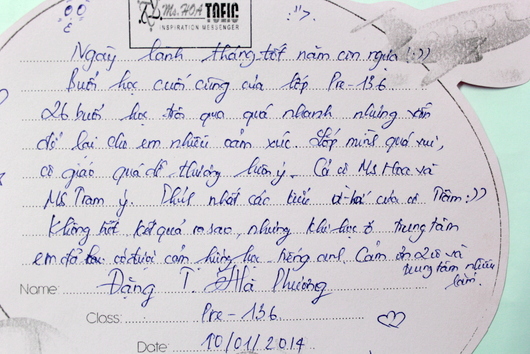 Ms.HOA TOEIC
INSPIRATION MESSENGER
:">
Ngày lành tháng tốt năm con ngựa! :))
Buổi học cuối cùng của lớp Pre-136.
26 buổi học trôi qua quá nhanh nhưng vẫn
để lại cho em nhiều cảm xúc. Lớp mình quá vui,
cô giáo quá dễ thương luôn ý. Cả cô Ms Hoa và
Ms Tram ý. Thích nhất các của cô Trâm :))
Không biết kết quả ra sao, nhưng khi học ở trung tâm
em đã có được cảm hứng học tiếng anh. Cảm ơn 2 cô và
trung tâm nhiều
lắm.
Name Đặng T. Hà Phương
Class: Pre-136
Date: 10/01/2014